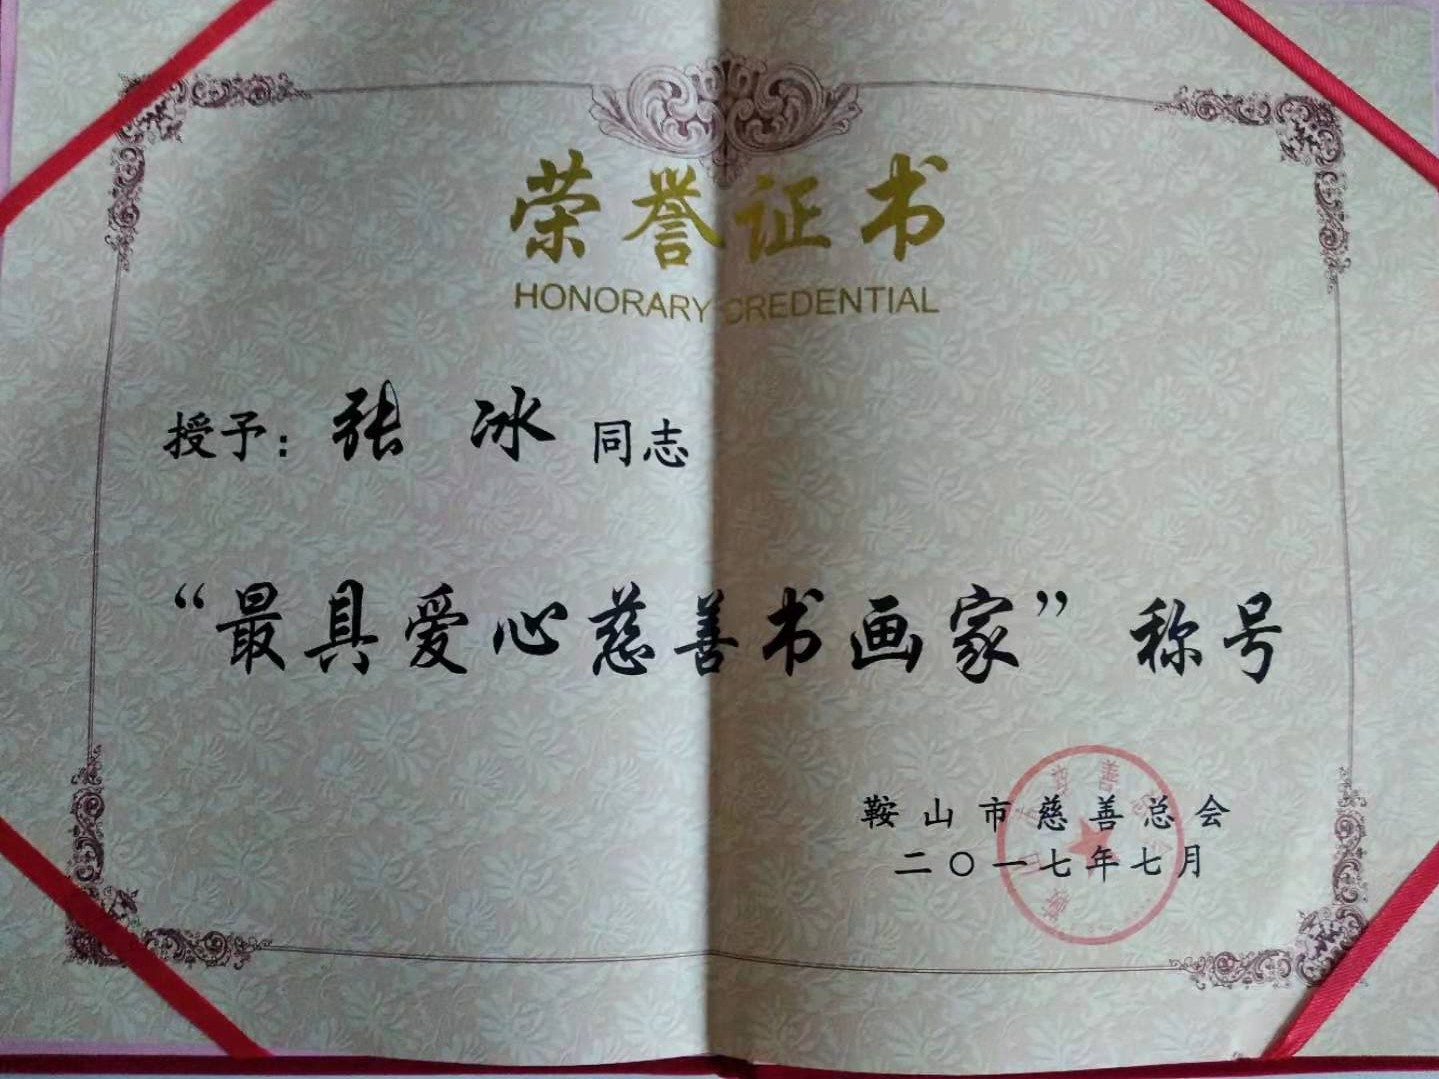 荣誉证书
HONORARY CREDENTIAL
授予：张 冰 同志
“最具爱心慈善书画家”称号
鞍山市慈善总会
二〇一七年七月